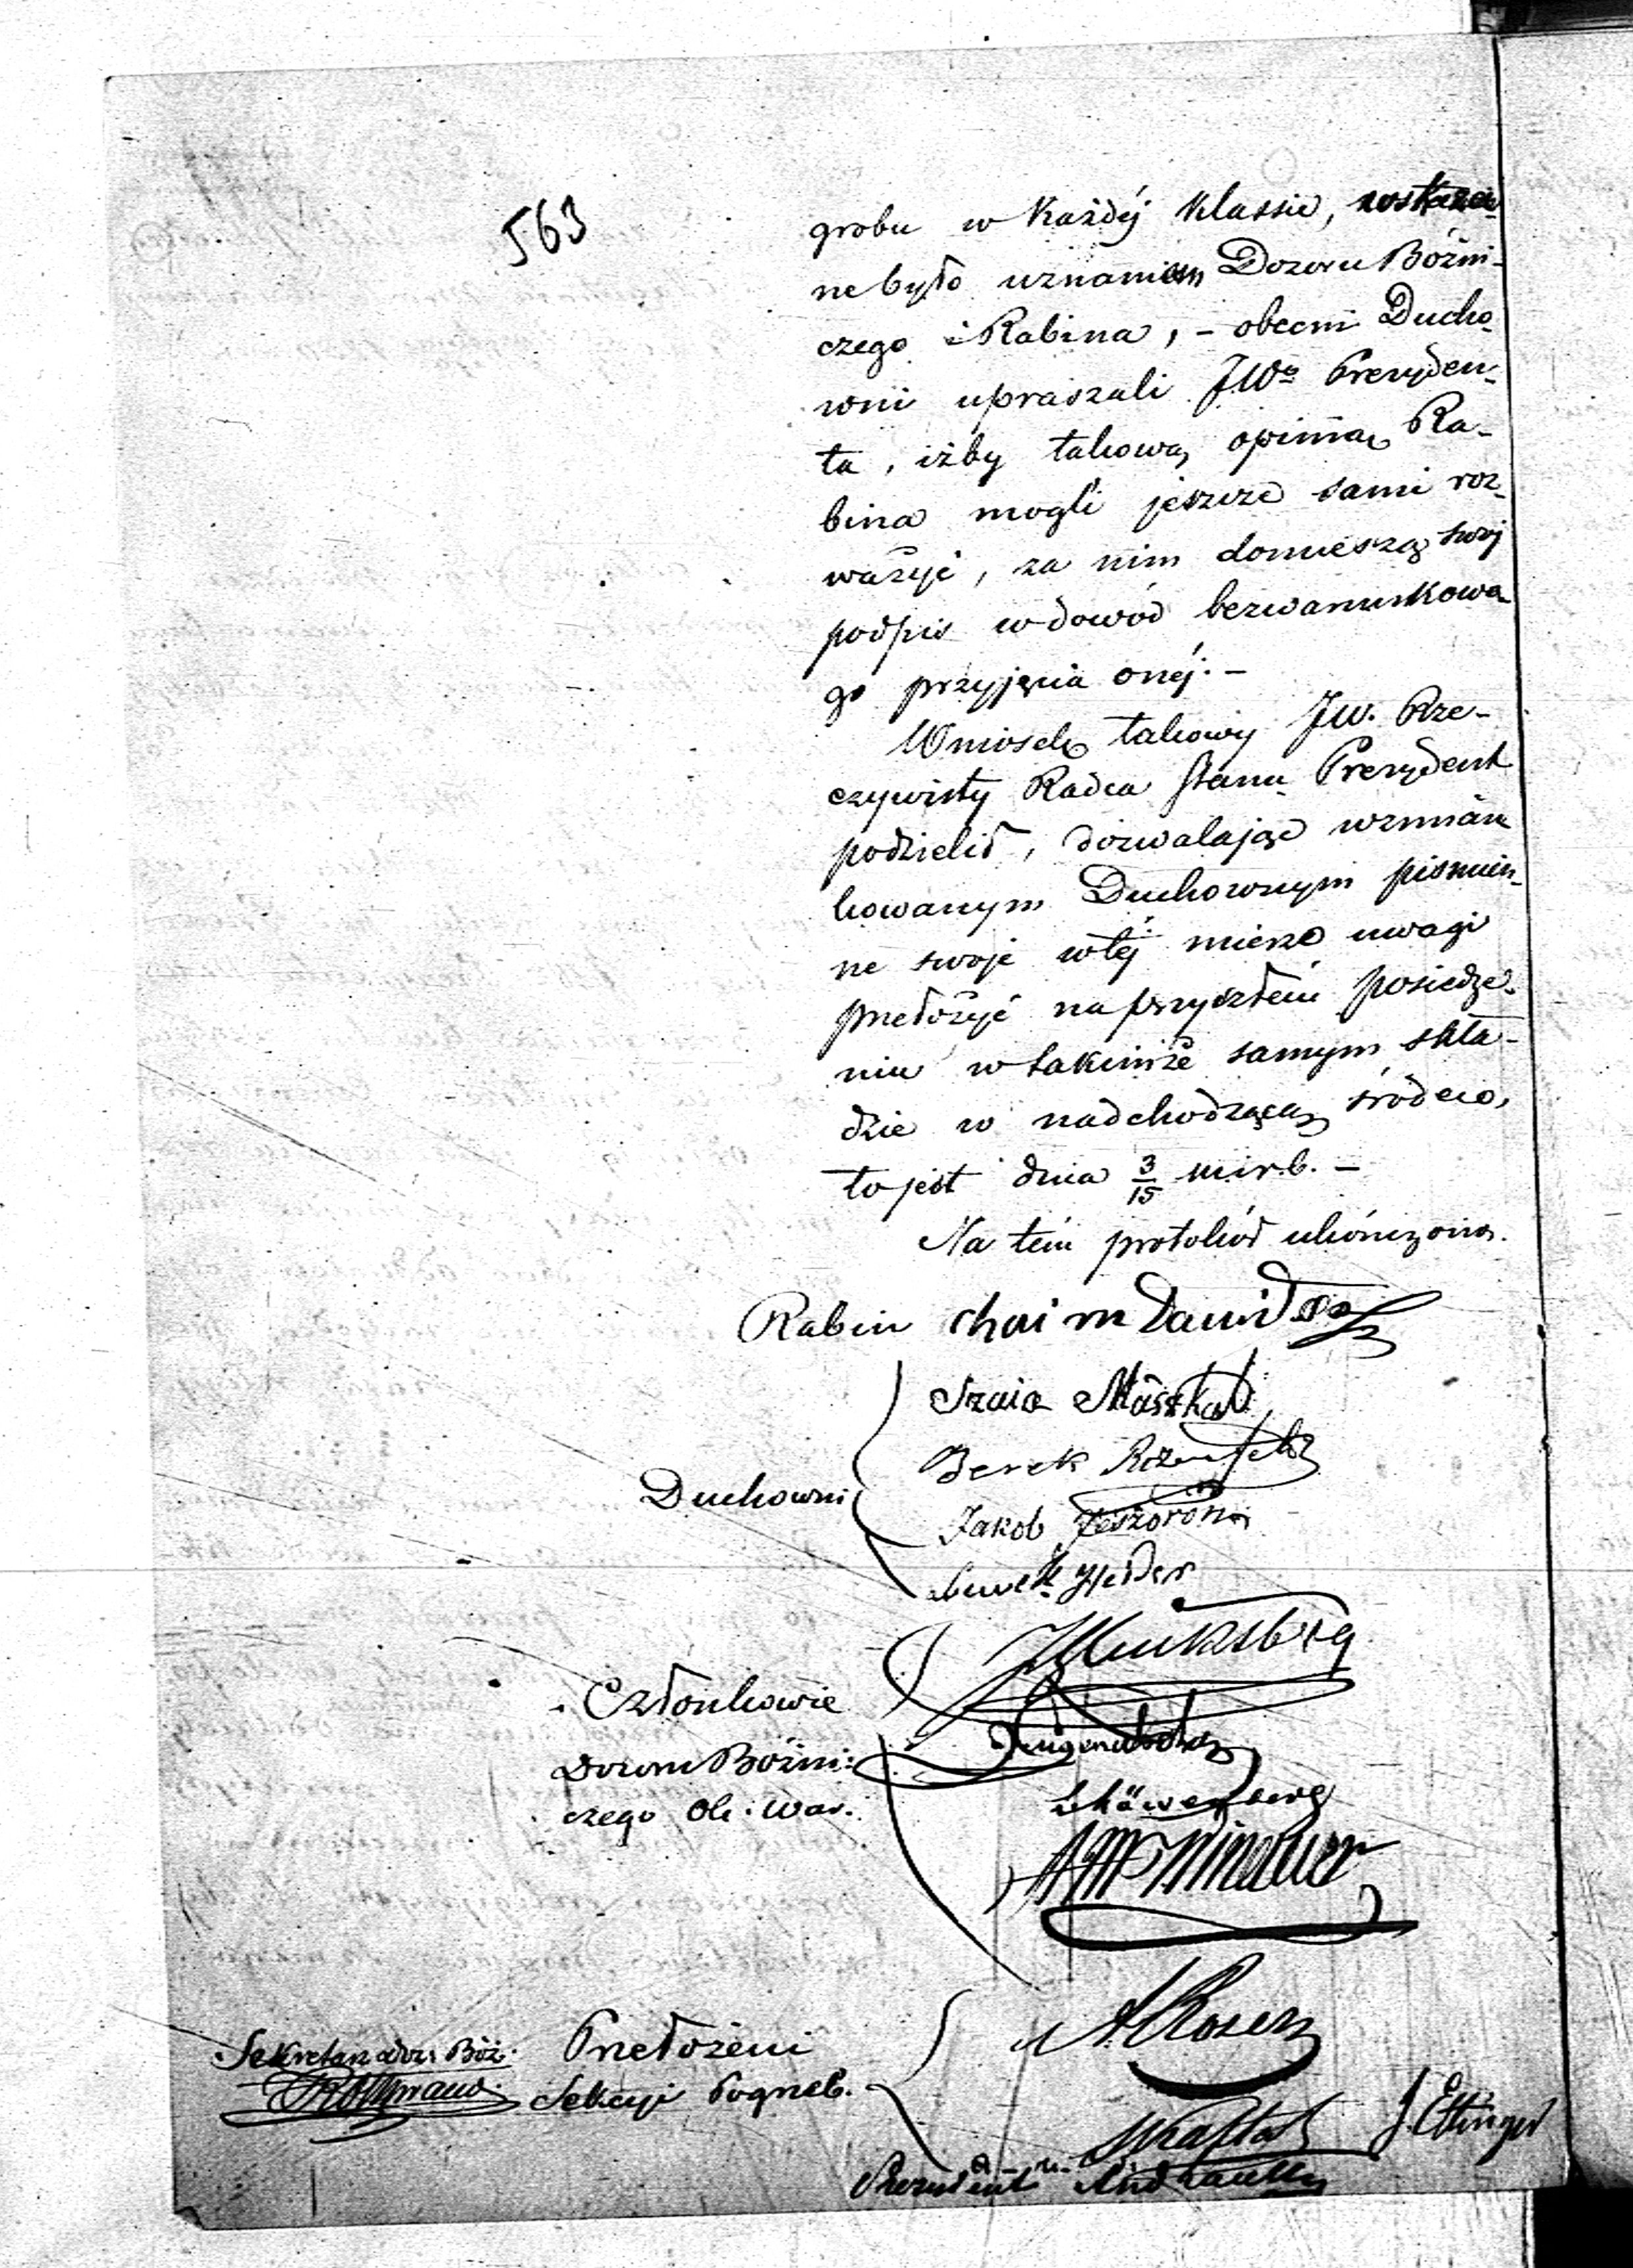 563
grobu w każdéj klassie, zostawio
ne było uznaniem Dozoru Bóżni-
czego i Rabina, – obecni Ducho
wni upraszali JWo Prezyden-
ta, iżby takową opinią Ra-
bina mogli jeszcze sami roz-
ważyć, za nim domieszczą swój
podpis w dowód bezwarunkowe-
go przyjęcia onéj. –
Wniosek takowy JW. Rze-
czywisty Radca Stanu Prezydent
podzielił, dozwalając wzmian
kowanym Duchownym pismien-
ne swoje w téj mierze uwagi
przełożyć na przyszłém posiedze-
niu w takimże samym skła-
dzie w nadchodzącą środę,
to jest dnia 3/15 m i r. b. –
Na tém protokół ukończono.
Rabin chaim Dawid
Szaia Maszkat
Berek Rozenfeld
Duchowni
Jakob
Członkowie
Dozoru Bóżni-
czego Ok: War.
Winawer
A Rosen
Przełożeni
Sekretarz Doz: Boż.
Sekcyi Pogrzeb.
J. Ettinger
Prezydent